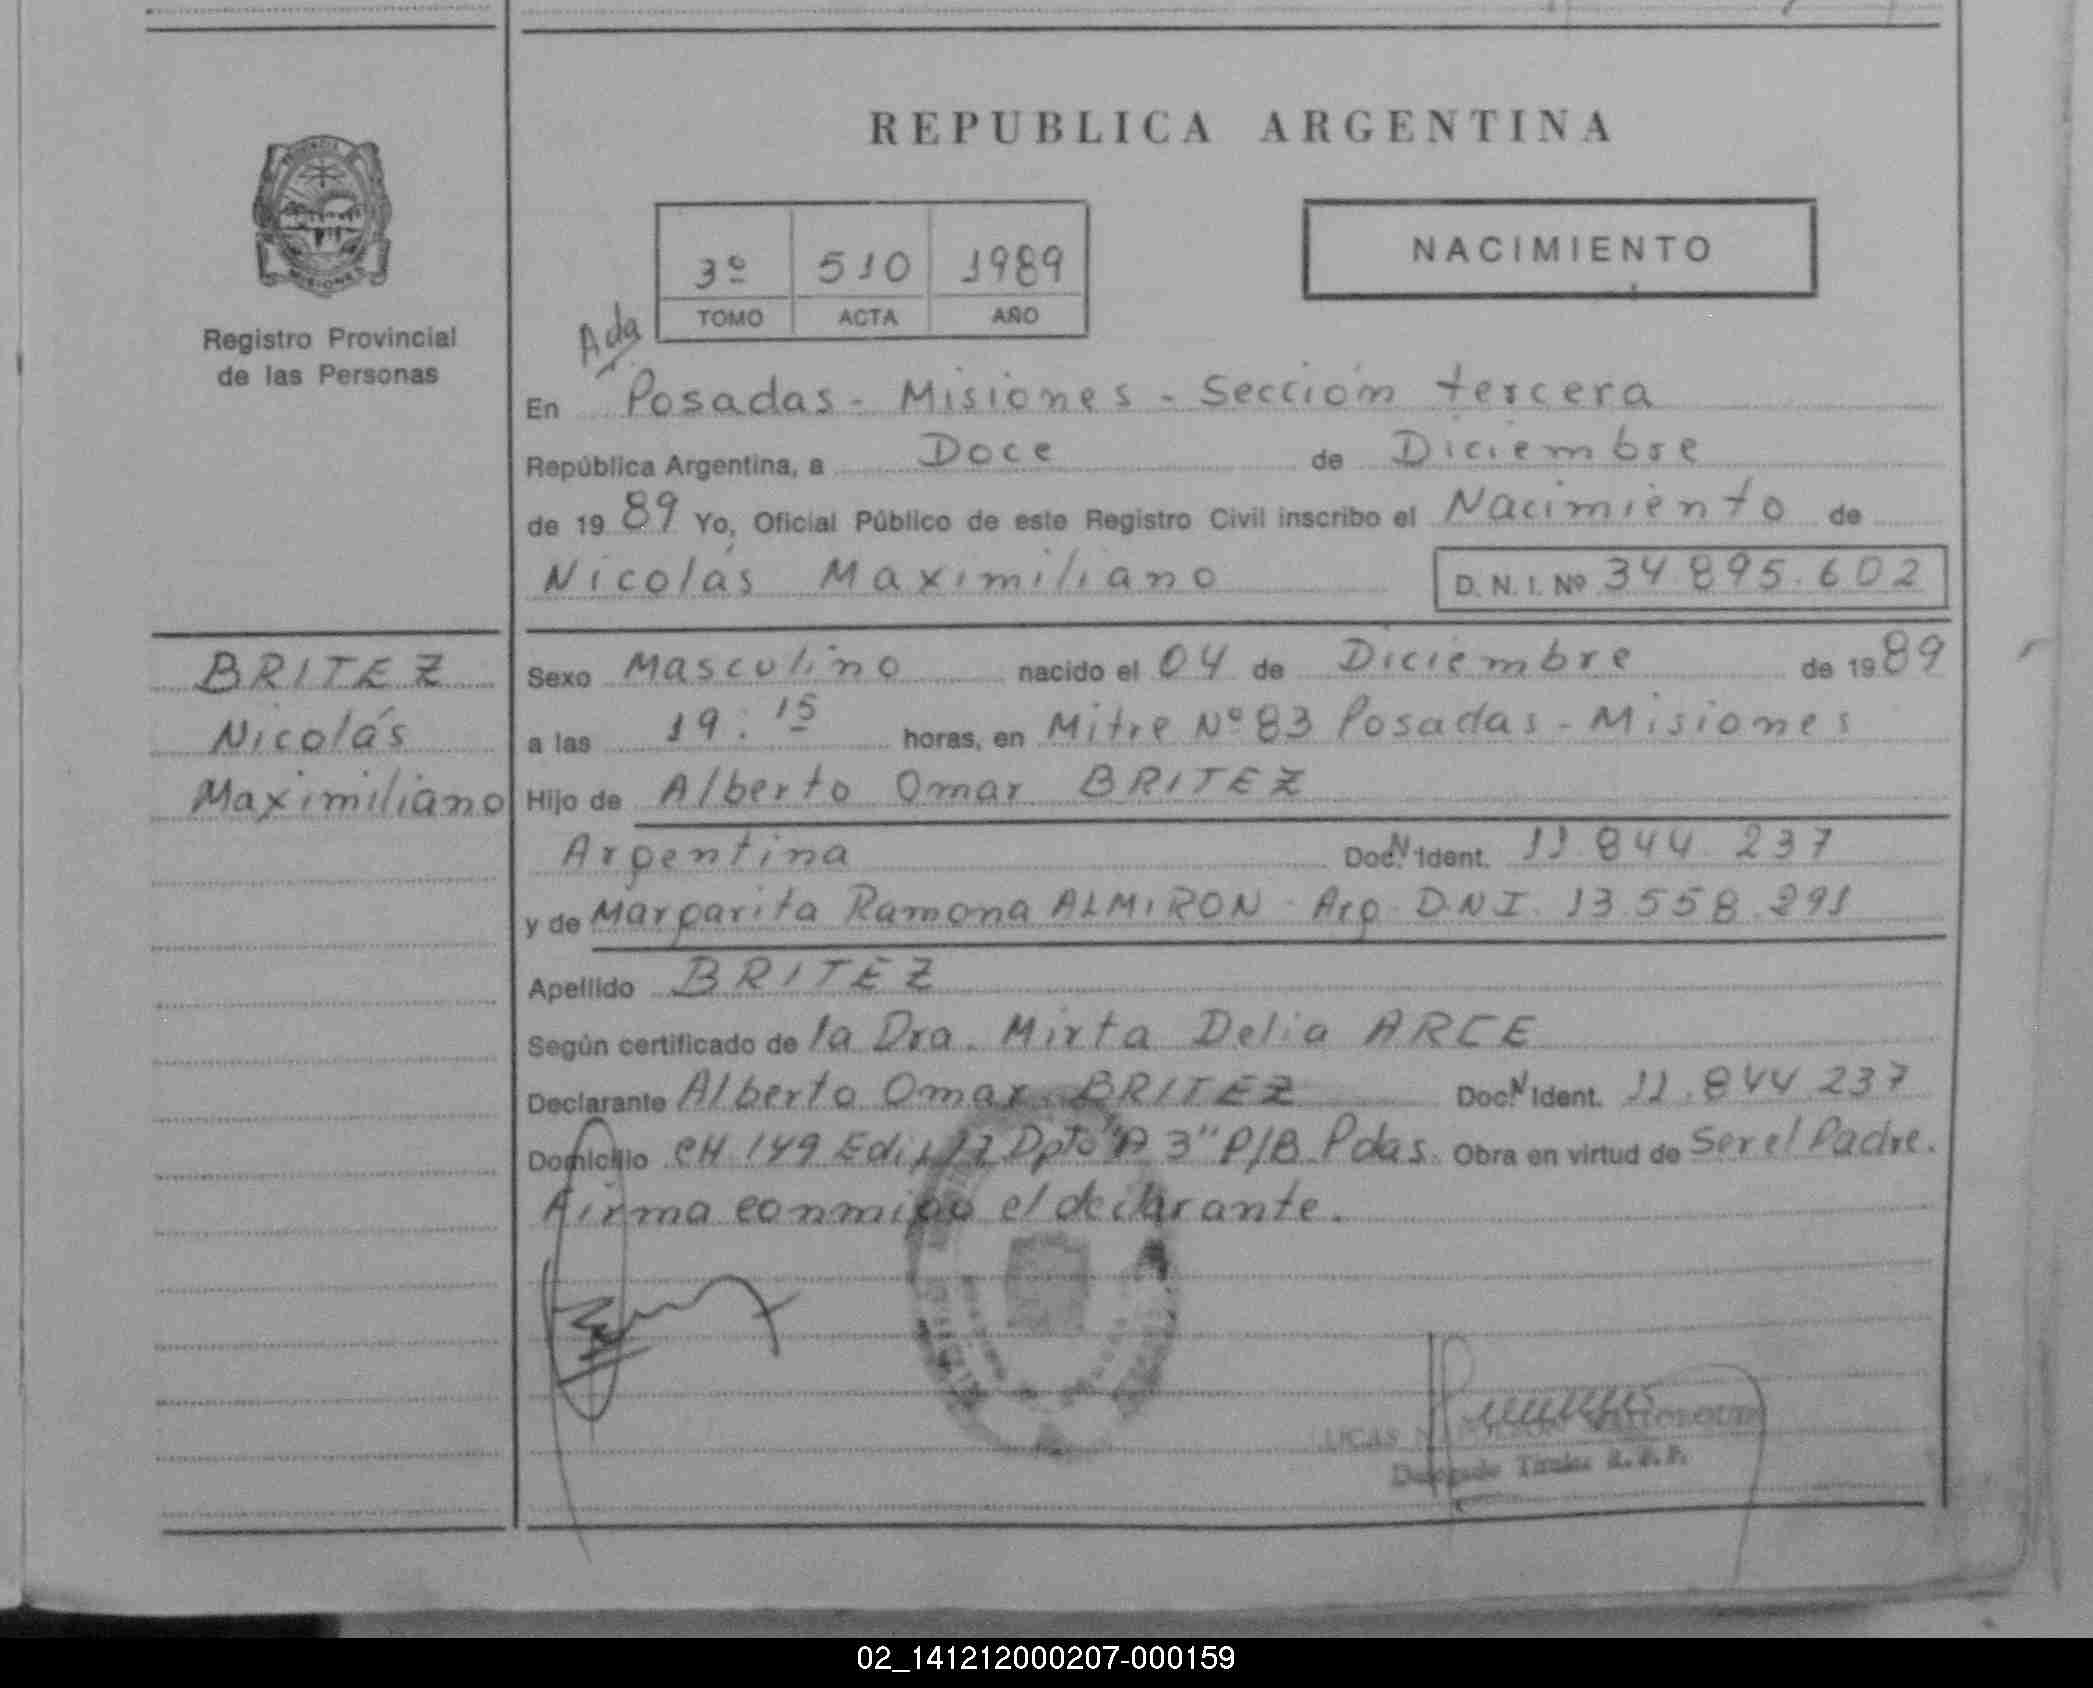 REPUBLICA ARGENTINA
3º 510 1989
TOMO ACTA AÑO
NACIMIENTO
PROVINCIA
MISIONES
Registro Provincial
de las Personas
Ada
En Posadas - Misiones - Sección tercera
República Argentina, a Doce de Diciembre
de 1989 Yo, Oficial Público de este Registro Civil inscribo el Nacimiento de
Nicolás Maximiliano D. N. I. Nº 34.895.602
BRITEZ
Nicolás
Maximiliano
Sexo Masculino nacido el 04 de Diciembre de 1989
a las 19:15 horas, en Mitre Nº 83 Posadas - Misiones
Hijo de Alberto Omar BRITEZ
Argentina Doc. N Ident. 11.844.237
y de Margarita Ramona ALMIRON - Arg. D.N.I. 13.558.291
Apellido BRITEZ
Según certificado de la Dra. Mirta Delia ARCE
Declarante Alberto Omar BRITEZ Doc. N Ident. 11.844.237
Domicilio CH 149 Edif 12 Dpto "A 3" P/B Pdas. Obra en virtud de Ser el Padre.
Firma conmigo el declarante.
LUCAS
Delegado Titular R.P.P.
02_141212000207-000159